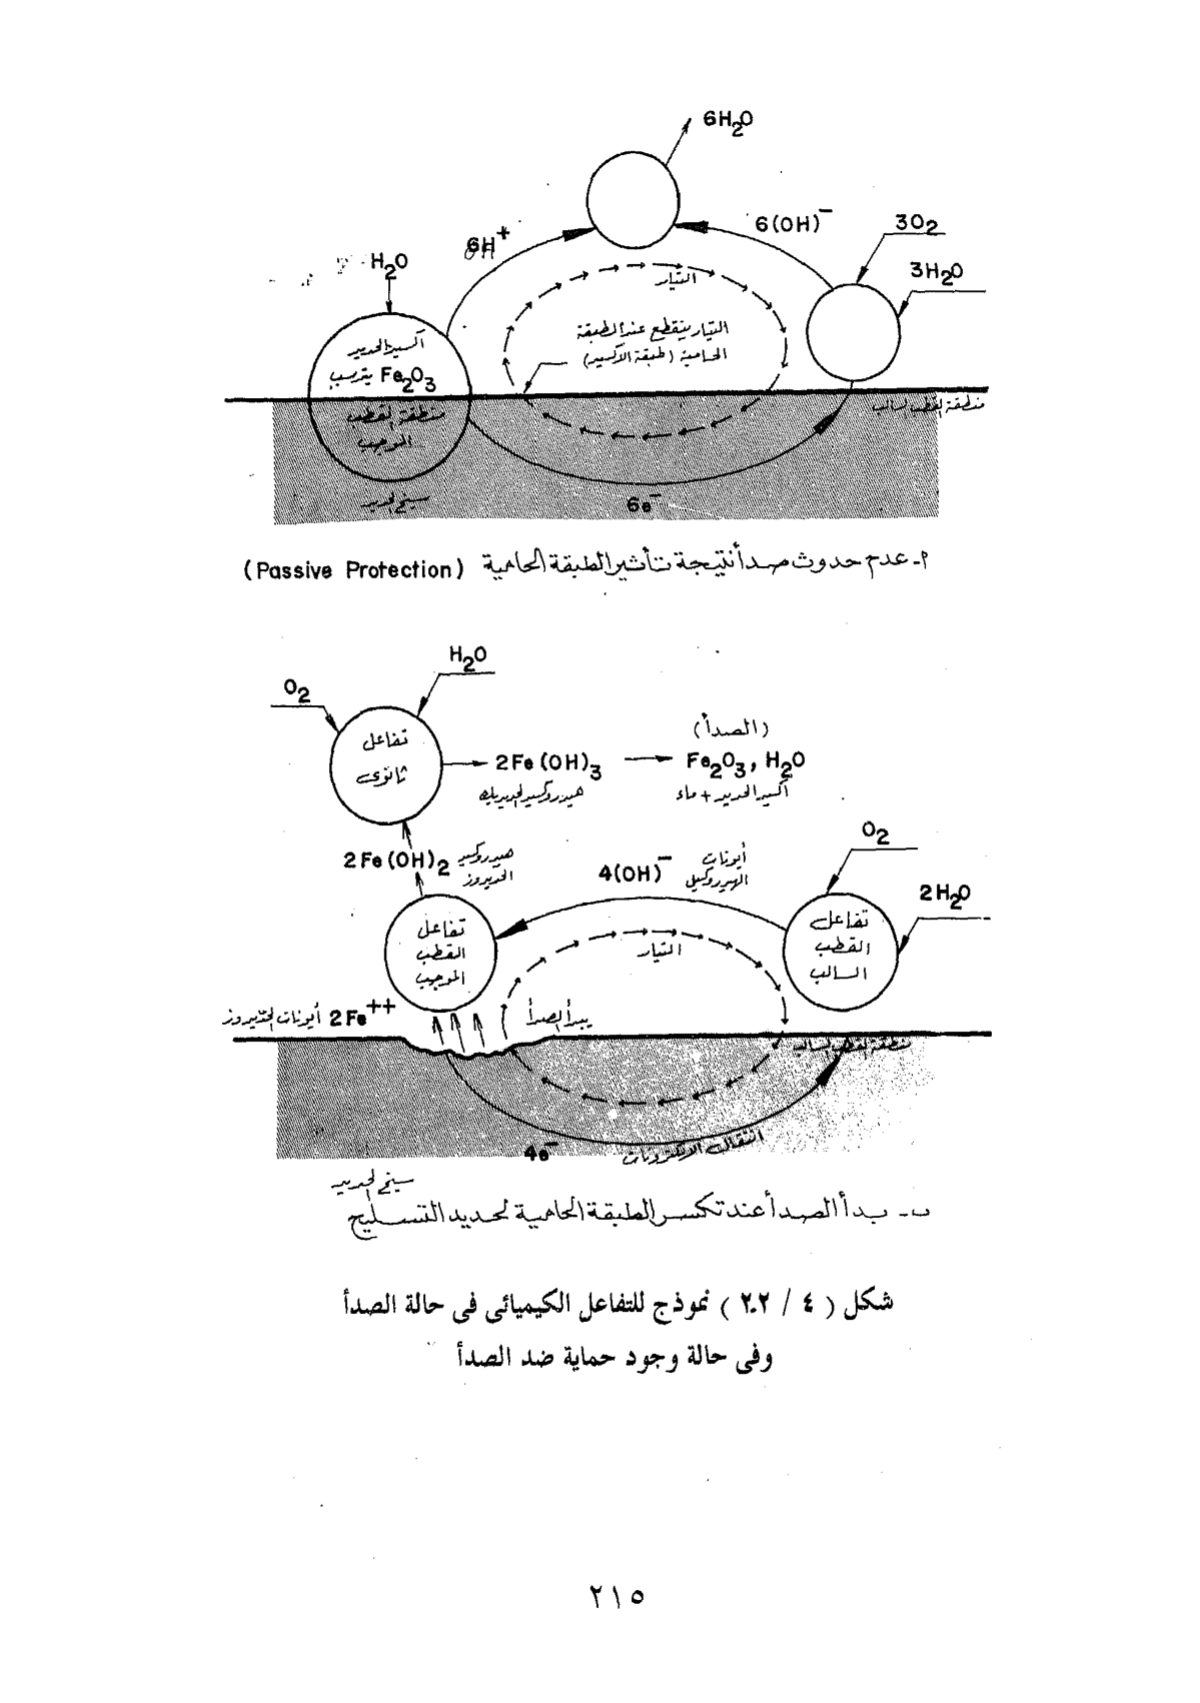 6H₂O
6(OH)⁻
3O₂
6H⁺
3H₂O
H₂O
التيار
أكسيد الحديد
Fe₂O₃ يترسب
التيار ينقطع عند الطبقة
الحامية (طبقة الأكسيد)
منطقة القطب السالب
منطقة القطب
الموجب
سيخ الحديد
6e⁻
أ- عدم حدوث صدأ نتيجة تأثير الطبقة الحامية (Passive Protection)
H₂O
O₂
تفاعل
ثانوى
(الصدأ)
2Fe(OH)₃
Fe₂O₃, H₂O
هيدروكسيد الحديديك
أكسيد الحديد + ماء
O₂
2Fe(OH)₂
هيدروكسيد
الحديدوز
4(OH)⁻
أيونات
الهيدروكسيل
2H₂O
تفاعل
القطب
الموجب
التيار
تفاعل
القطب
السالب
2Fe⁺⁺ أيونات الحديدوز
يبدأ الصدأ
منطقة القطب السالب
4e⁻
انتقال الالكترونات
سيخ الحديد
ب- بدأ الصدأ عند تكسر الطبقة الحامية لحديد التسليح
شكل ( ٤ / ٢.٢ ) نموذج للتفاعل الكيميائى فى حالة الصدأ
وفى حالة وجود حماية ضد الصدأ
٢١٥